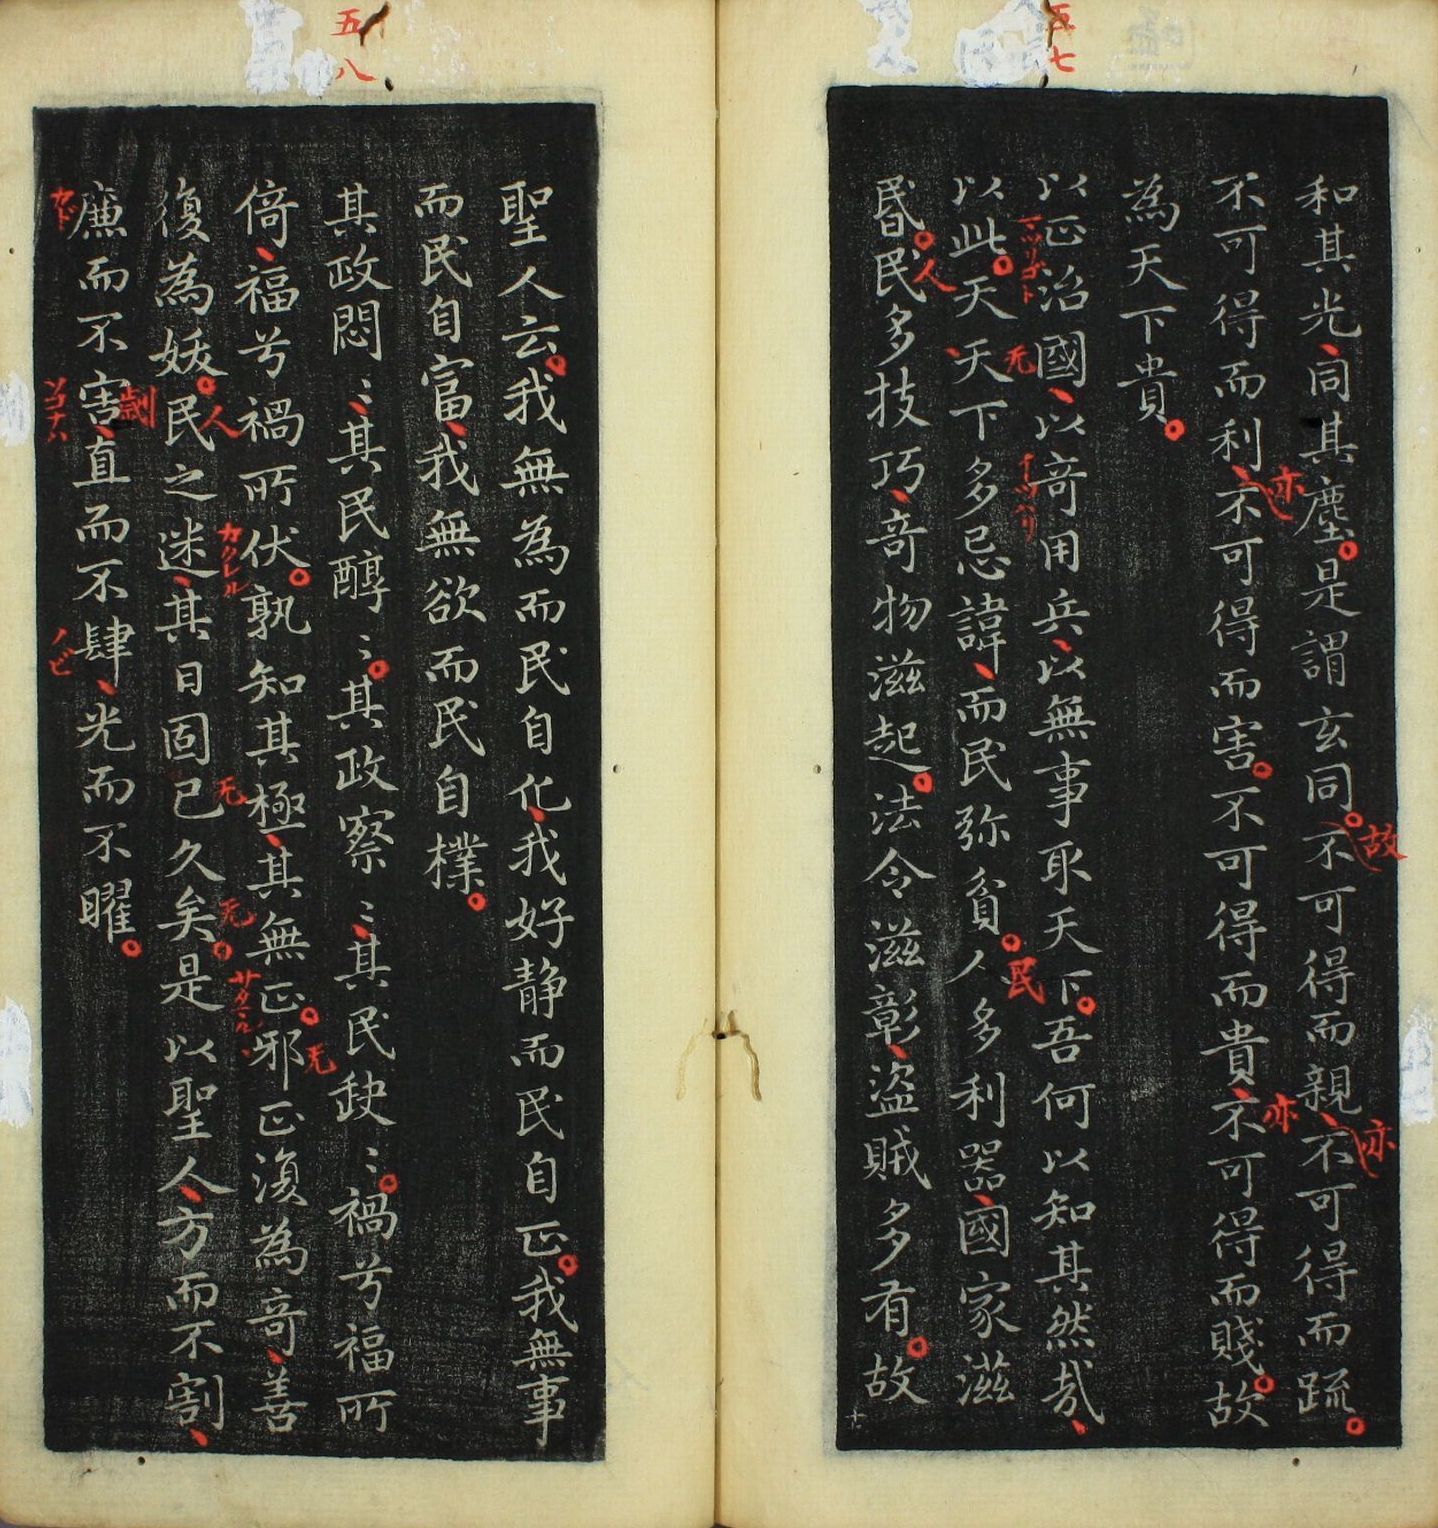 五七
和其光同其塵是謂玄同不可得而親不可得而疏
故
亦
不可得而利不可得而害不可得而貴不可得而賤故
亦
亦
為天下貴
以正治國以奇用兵以無事取天下吾何以知其然哉
以此天天下多忌諱而民弥貧人多利器國家滋
无
民
昬民多技巧奇物滋起法令滋彰盜賊多有故
人
五八
聖人云我無為而民自化我好静而民自正我無事
而民自富我無欲而民自樸
其政悶〻其民醇〻其政察〻其民缺〻禍兮福所
倚福兮禍所伏孰知其極其無正邪正復為奇善
カクレル
无
復為妖民之迷其日固已久矣是以聖人方而不割
人
无
无
廉而不害直而不肆光而不曜
カド
劌
ソコナハ
ノビ